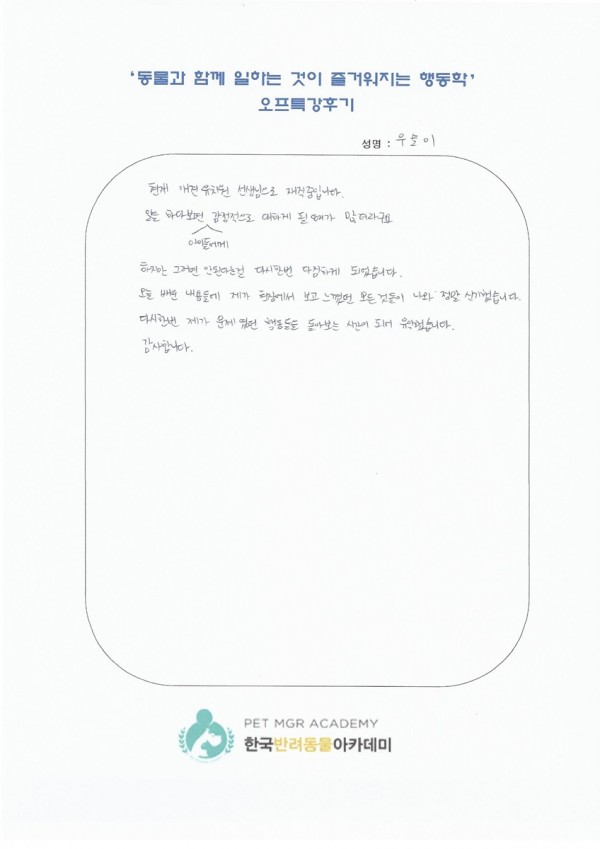 ‘동물과 함께 일하는 것이 즐거워지는 행동학’
오프특강후기
성명 : 우
현재 애견유치원 선생님으로 재직중입니다.
일을 하다보면 감정적으로 대하게 될 때가 많더라구요
아이들에게
하지만 그러면 안된다는걸 다시한번 다짐하게 되었습니다.
오늘 배운 내용들에 제가 현장에서 보고 느꼈던 모든것들이 나와 정말 신기했습니다.
다시한번 제가 문제였던 행동들을 돌아보는 시간이 되어 유익했습니다.
감사합니다.
PET MGR ACADEMY
한국반려동물아카데미